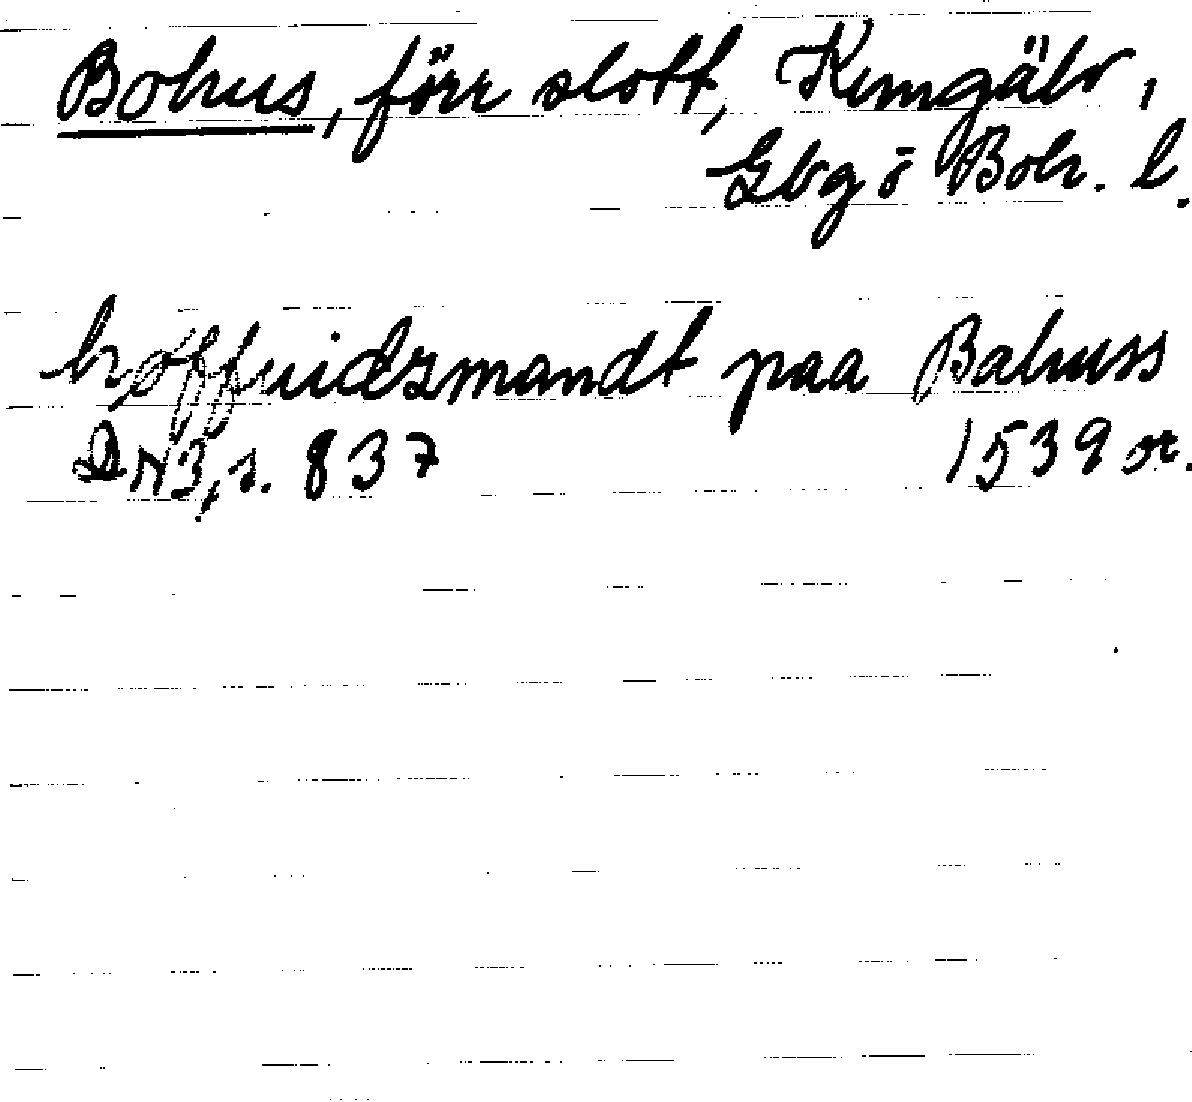 Bohus, förr slott, Kungälv,
Gbg o Boh. l.
høffuidzmandt paa Bahuss
DN 3, s. 837 1539 or.